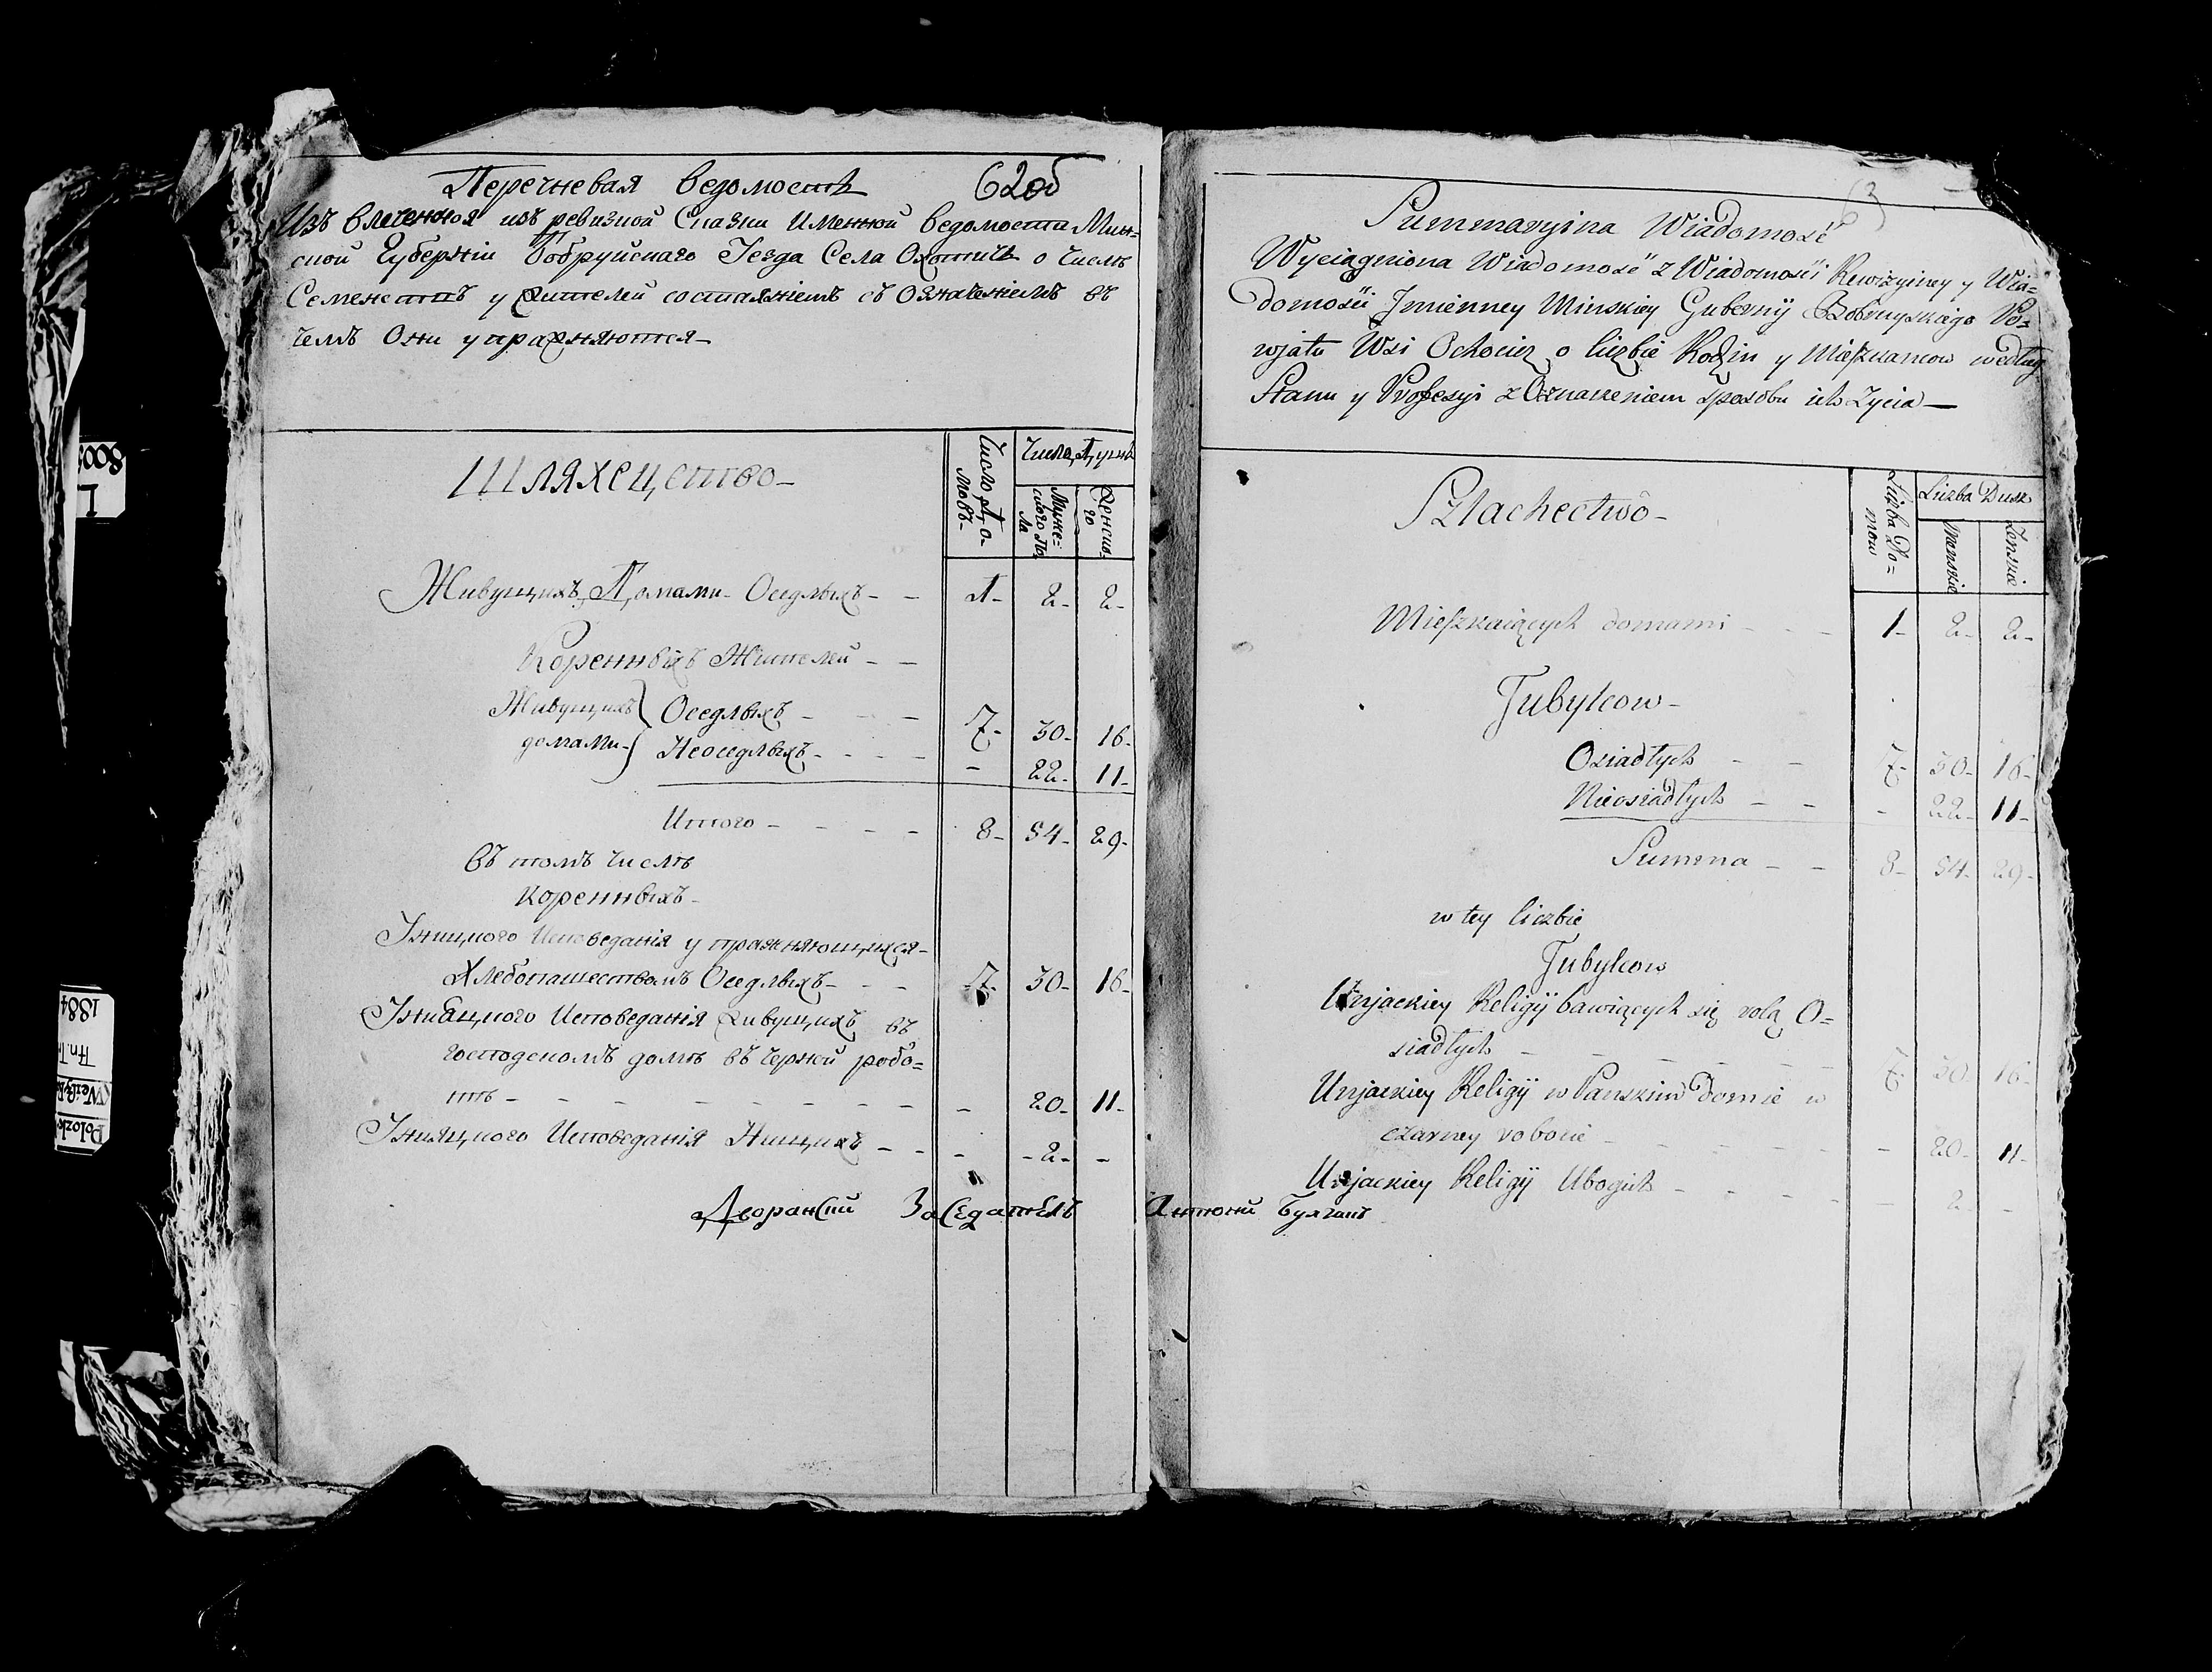 Перечневая ведомость
62об
Изъ влеченная изъ ревизкой Сказки Именной ведомости Мин=
ской Губернiи Бобруйскаго Уезда Села Охотичь о числѣ
Семействъ у жителей состаянiемъ съ Означенiемъ въ
чемъ Они упражняются
Шляхецство
Число До=
мовъ
Числа Душъ
Муже=
ского По
ла
Женско=
го
Живущихъ Домами Оседлыхъ 1 2 2
Коренныхъ Жителей
Живущихъ Оседлыхъ 7 30 16
домами Неоседлыхъ - 22 11
Итого 8 54 29
въ томъ числѣ
Коренныхъ
Уницкого Исповеданiя упражняющихся
Хлебопашествомъ Оседлыхъ 7 30 16
Исповеданiя живущихъ въ
господскомъ домѣ въ черной робо=
тѣ - 20 11
Исповеданiя Нищихъ - 2 -
Дворанский Заседатель Антони Булгакъ
63
Summaryina Wiadomość
Wyciągniona Wiadomość z Wiadomości Rewizyiney y Wia=
domości Jmienney Minskiey Gubernij Bobruyskiego Po=
wjatu Wsi Ochocicz o liczbie Rodzin y Mieszkancow według
Stanu y Profesyi z Oznaczeniem sposobu ich Zycia
Szlachectwo
Liczba Do=
mow
Liczba Dusz
Menskie
Zenskie
Mieszkaiących domami 1 2 2
Tubylcow
Osiadłych 7 30 16
Nieosiadłych - 22 11
Summa 8 54 29
w tey liczbie
Tubylcow
Unjackiey Religij bawiących się rolą O=
siadłych 7 30 16
Unjackiey Religij w Panskim Domie w
czarney robocie - 20 11
Unjackiey Religij Ubogich - 2 -
1884